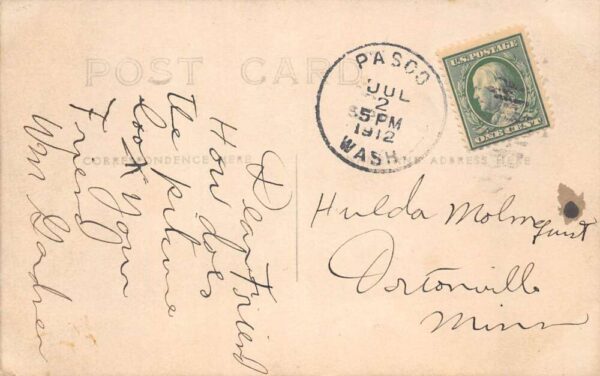 POST CARD
CORRESPONDENCE HERE
NAME ADDRESS HERE
PASCO
JUL
2
5PM
1912
WASH.
U.S. POSTAGE
ONE CENT
Dear Friend
How does
the picture
look
Your
Friend
Wm
Hulda Molmquist
Ortonville
Minn